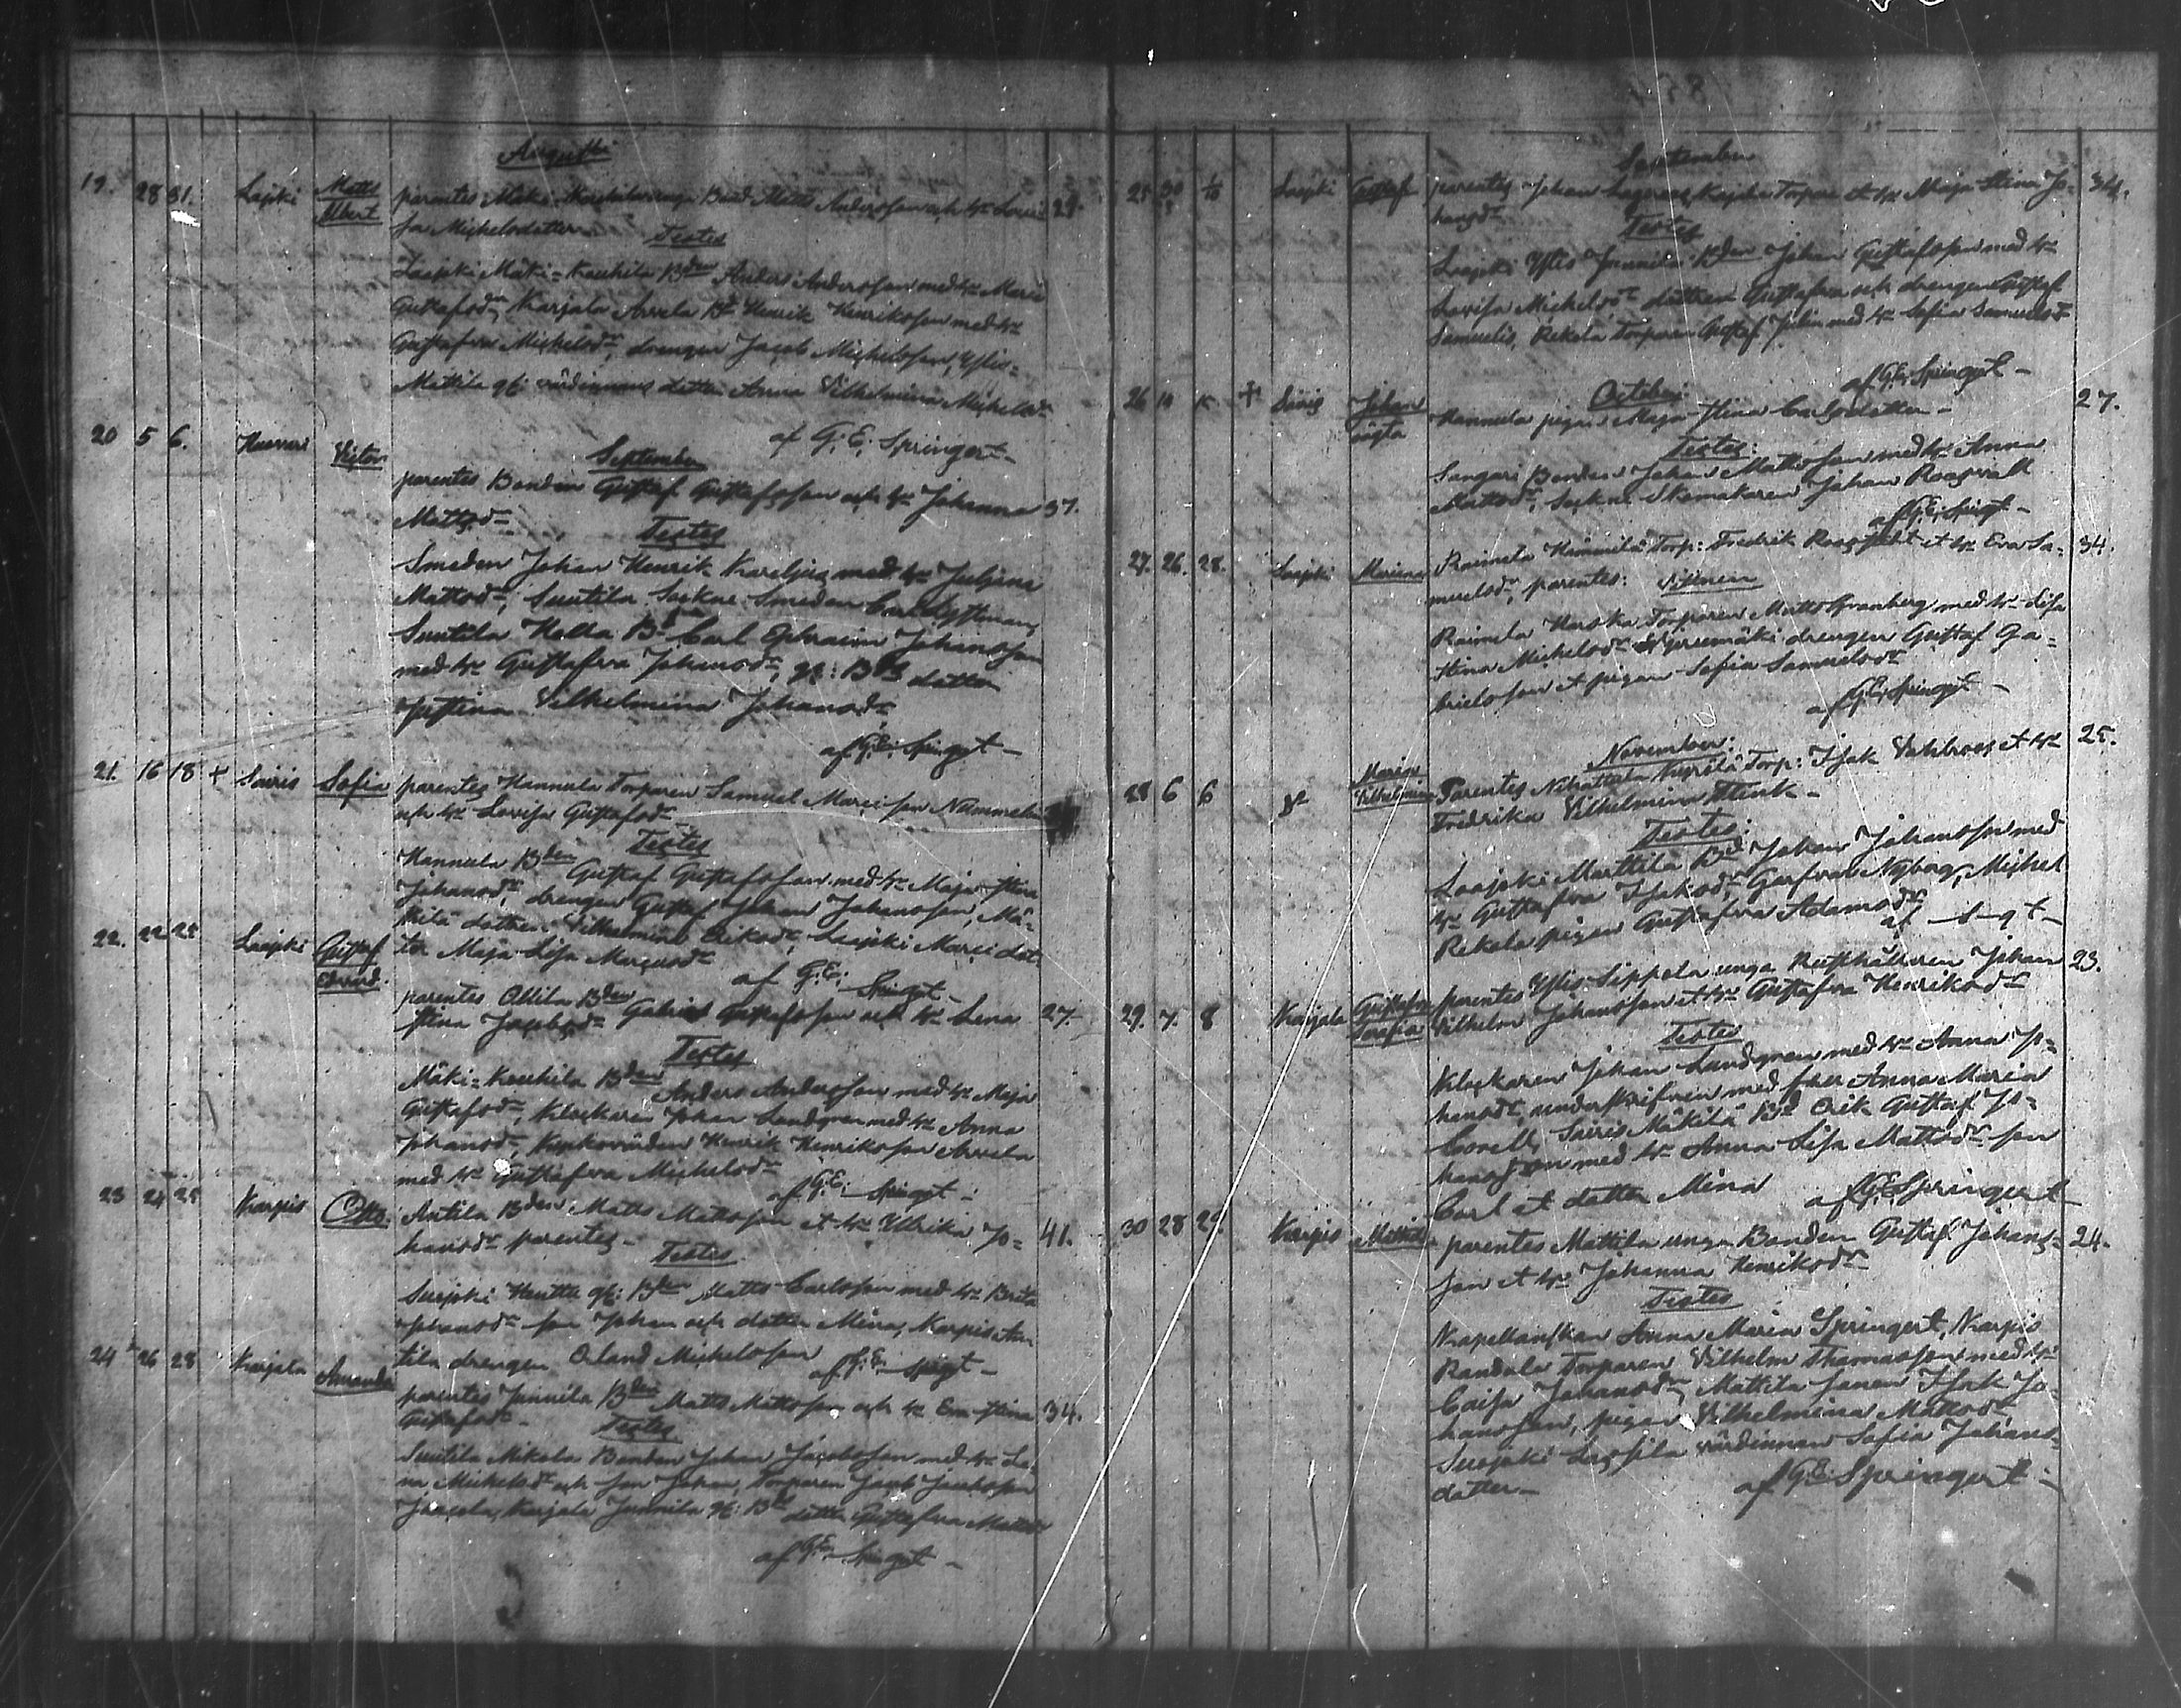 Augusti
19. 28 31. Lajki Matts parentes Mäki-Kouhila unga Bond. Matts Andersson och hr Lovi- 29.
Albert sa Michelsdotter Testes
Laajoki Mäki-Kouhila Bden Anders Andersson med hr Maria
Gustafsdr, Karjala Arvela Bd Henrik Henriksson med hr
Gustafva Michelsdr, drengen Jacob Michelsson, Ylis-
Mattila gl: värdinnans dotter Anna Vilhelmina Michelsdr
af G. E. Springert
September
20 5 6. Victor parentes Bonden Gustaf Gustafsson och hr Johanna 37.
Mattsdr Testes
Smeden Johan Henrik Karelius med hr Juliana
Mattsdr, Suutila Sockne Smeden Carl
Suutila Bd Carl Ephraim Johansson
med hr Gustafva Johansdr, gl: Bds dotter
Justina Vilhelmina Johansdr
af G.E. Springert
21. 16 18 + Säiris Sofia parentes Hannula Torparen Samuel Marcisson Nummelin
och hr Lovisa Gustafsdr
Testes
Hannula Bden Gustaf Gustafsson med hr Maja Stina
Johansdr, drengen Gustaf Johan Johansson, Mä-
kilä dottren Vilhelmina Eriksdr, Laajoki Marci dot-
ter Maja Lisa Marcusdr
af G.E. Springert
22. 22 25 Laajoki Gustaf Edvard. parentes Ollila Bden Gabriel Gustafsson och hr Lena 27.
Stina Jacobsdr
Testes
Mäki-Kouhila Bden Anders Andersson med hr Maja
Gustafsdr, Klockaren Johan Landgren med hr Anna
Johansdr, Kyrkovärden Henrik Henriksson Arvela
med hr Gustafva Michelsdr
af G.E. Springert
23 24 25 Karpis Otto. Antila Bden Matts Mattsson et hr Ulrika Jo- 41.
hansdr parentes
Testes
Suojoki Heutta gl: Bden Matts Carlsson med hr Brita
Johansdr son Johan och dotter Mina, Karpis An-
tila drengen Erland Michelsson
af G.E. Springert
24 26 28 Karjala Amanda parentes Junnila Bden Matts Mattsson och hr Eva Stina 34.
Gustafsdr Testes
Suutila Mikola Bonden Johan Jacobsson med hr Le-
na Michelsdr och son Johan, Torparen Jacob Jacobsson
Karjala Junnila gl: Bds dotter Gustafva Matts-
af G.E. Springert
September
25 30 Laajoki Gustaf parentes Johan Torpare et hr Maja Stina Jo- 34.
hansdr Testes
Laajoki Ylis Junnila Bden Johan Gustafsson med hr
Lovisa Michelsdr dottren Gustafva och drengen Gustaf
Samuelis, Rekola Torparen Gustaf Julin med hr Sofia Samuelsdr
af G.E. Springert
October
26 14 15 + Säiris Johan oägta Hannula pigan Maja Stina Carlsdotter 27.
Testes:
Sangari Bonden Johan Mattsson med hr Anna
Mattsdr, Sockne Skomakaren Johan Rosvall
af G.E. Springert
27. 26. 28. Laajoki Mariana Raimela Hämmilä Torp: Fredrik et hr Eva Sa- 34.
muelsdr, parentes: Vittnen
Raimela Torparen Matts Granberg med hr Lisa
Stina Michelsdr drengen Gustaf Ga-
brielsson et pigan Sofia Samuelsdr
af G.E. Springert
November:
28 6 6 do Maria Vilhelmina Parentes Nihattula Torp: Isak Vahlroos et hr 25.
Fredrika Vilhelmina Flink
Testes:
Laajoki Marttila Bd Johan Johansson med
hr Gustafva Isaksdr Nyborg, Michel
Rekola pigan Gustafva Adamsdr
af S-g-t
29. 7. 8 Karjala Gustafva Josefia parentes Ylis-Sippola unga Rusthållaren Johan 23.
Vilhelm Johansson et hr Gustafva Henriksdr
Testes
Klockaren Johan Landgren med hr Anna Jo-
hansdr, underskrifven med fru Anna Maria
Corell, Säiris Mäkilä Bd Erik Gustaf Jo-
hansson med hr Anna Lisa Mattsdr son
Carl et dotter Mina
af G.E. Springert
30 28 29. Karpis Mathilda parentes Mattila unga Bonden Gustaf Johans- 24.
son et hr Johanna Henriksdr
Testes
Kapellanskan Anna Maria Springert, Karpis
Randula Torparen Vilhelm Thomasson med hr
Caisa Johansdr, Mattila sonen Isak Jo-
hansson, pigan Vilhelmina Mattsdr
Suojoki värdinnan Sofia Johans-
dotter
af G.E. Springert